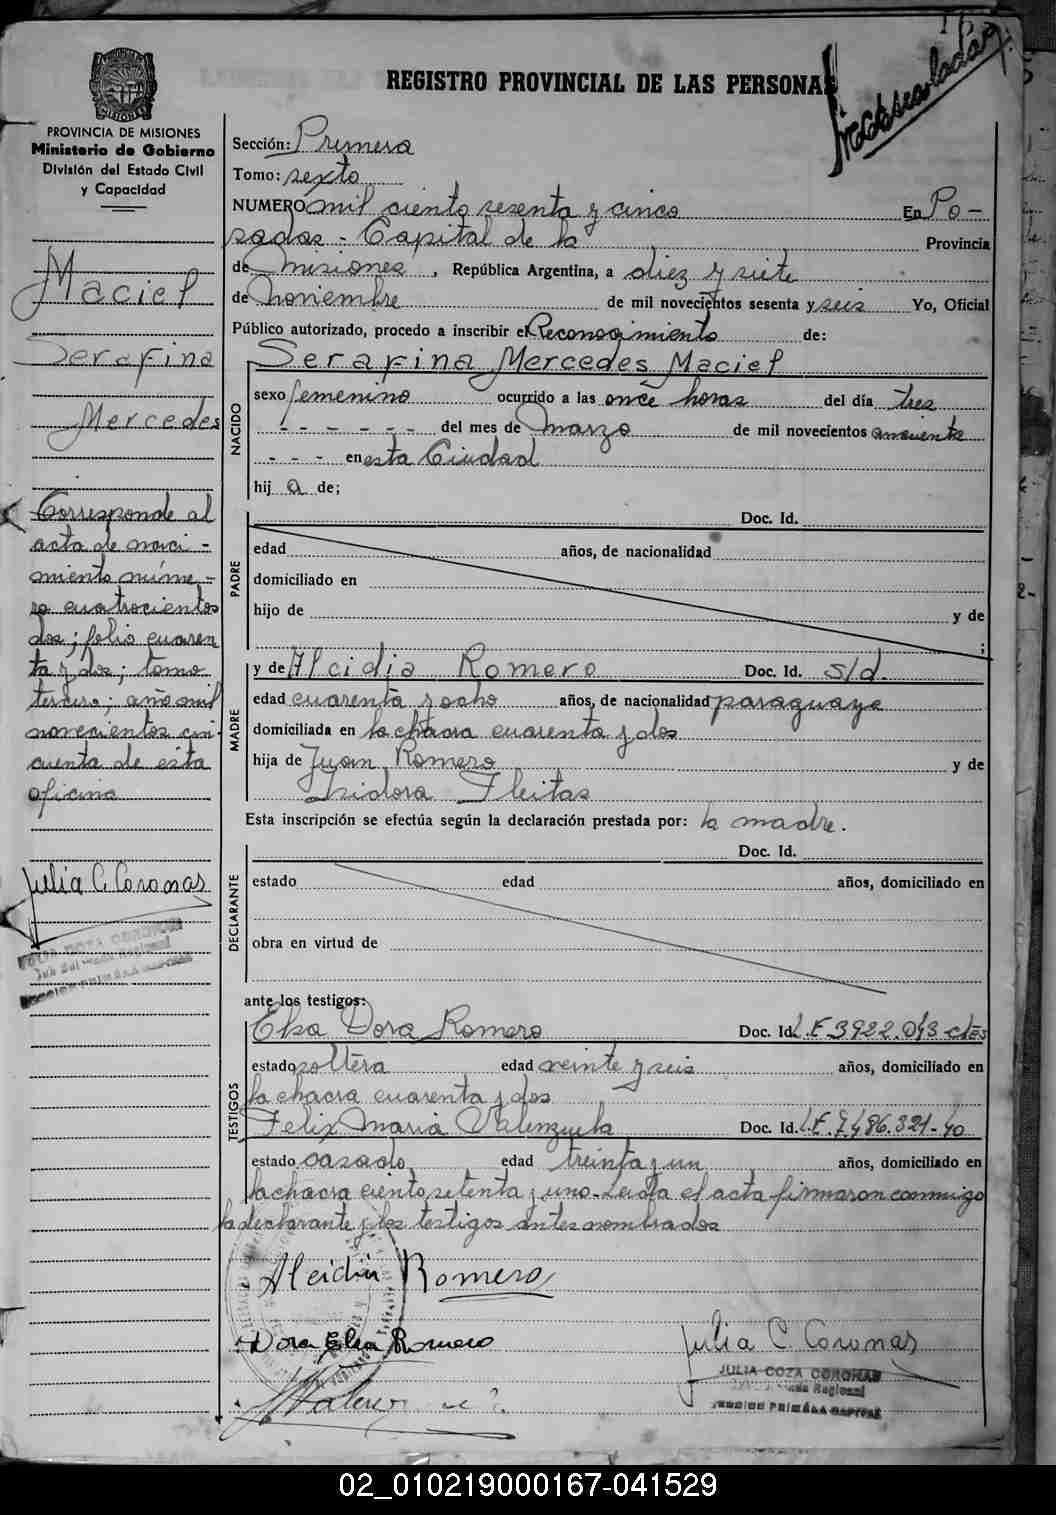 REGISTRO PROVINCIAL DE LAS PERSONAS
PROVINCIA DE MISIONES
Ministerio de Gobierno
División del Estado Civil
y Capacidad
Sección: Primera
Tomo: sexto
NUMERO mil ciento sesenta y cinco En Po-
sadas - Capital de la Provincia
de Misiones, República Argentina, a diez y siete
de noviembre de mil novecientos sesenta y seis Yo, Oficial
Público autorizado, procedo a inscribir el Reconocimiento de:
Maciel
Serafina
Mercedes
Corresponde al
acta de naci-
miento núme-
ro cuatrocientos
dos; folio cuaren
ta y dos; tomo
tercero; año mil
novecientos cin
cuenta de esta
oficina
Julia C. Coronas
JULIA COZA CORONAS
NACIDO
Serafina Mercedes Maciel
sexo femenino ocurrido a las once horas del día tres
- - - - - - del mes de Marzo de mil novecientos cincuenta
- - - en esta Ciudad
hij a de;
PADRE
Doc. Id.
edad años, de nacionalidad
domiciliado en
hijo de y de
;
MADRE
y de Alcidia Romero Doc. Id. s/d.
edad cuarenta y ocho años, de nacionalidad paraguaya
domiciliada en la chacra cuarenta y dos
hija de Juan Romero y de
Isidora Fleitas
Esta inscripción se efectúa según la declaración prestada por: la madre.
DECLARANTE
Doc. Id.
estado edad años, domiciliado en
obra en virtud de
ante los testigos:
TESTIGOS
Elsa Dora Romero Doc. Id. L.E 3922.043
estado soltera edad veinte y seis años, domiciliado en
la chacra cuarenta y dos
Felix Maria Valenzuela Doc. Id. L.E. 7.486.321-40
estado casado edad treinta y un años, domiciliado en
la chacra ciento setenta y uno. Leída el acta firmaron conmigo
la declarante y los testigos antes nombrados
Alcidia Romero
Dora Elsa Romero
Julia C. Coronas
JULIA COZA CORONAS
02_010219000167-041529